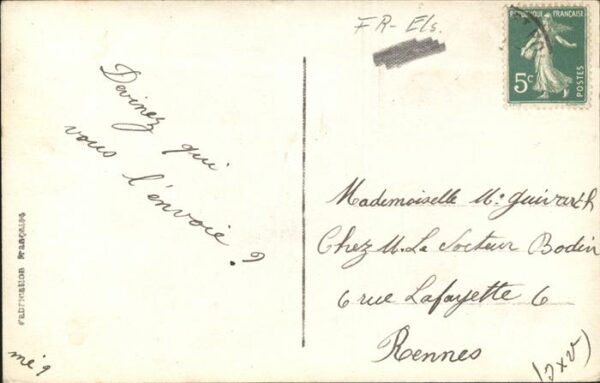 FR-Els.
REPUBLIQUE FRANÇAISE
5c
POSTES
Devinez qui
vous l'envoie ?
Mademoiselle M. Guivarch
Chez M. Le Docteur Bodin
6 rue Lafayette 6
Rennes
Fabrication Française